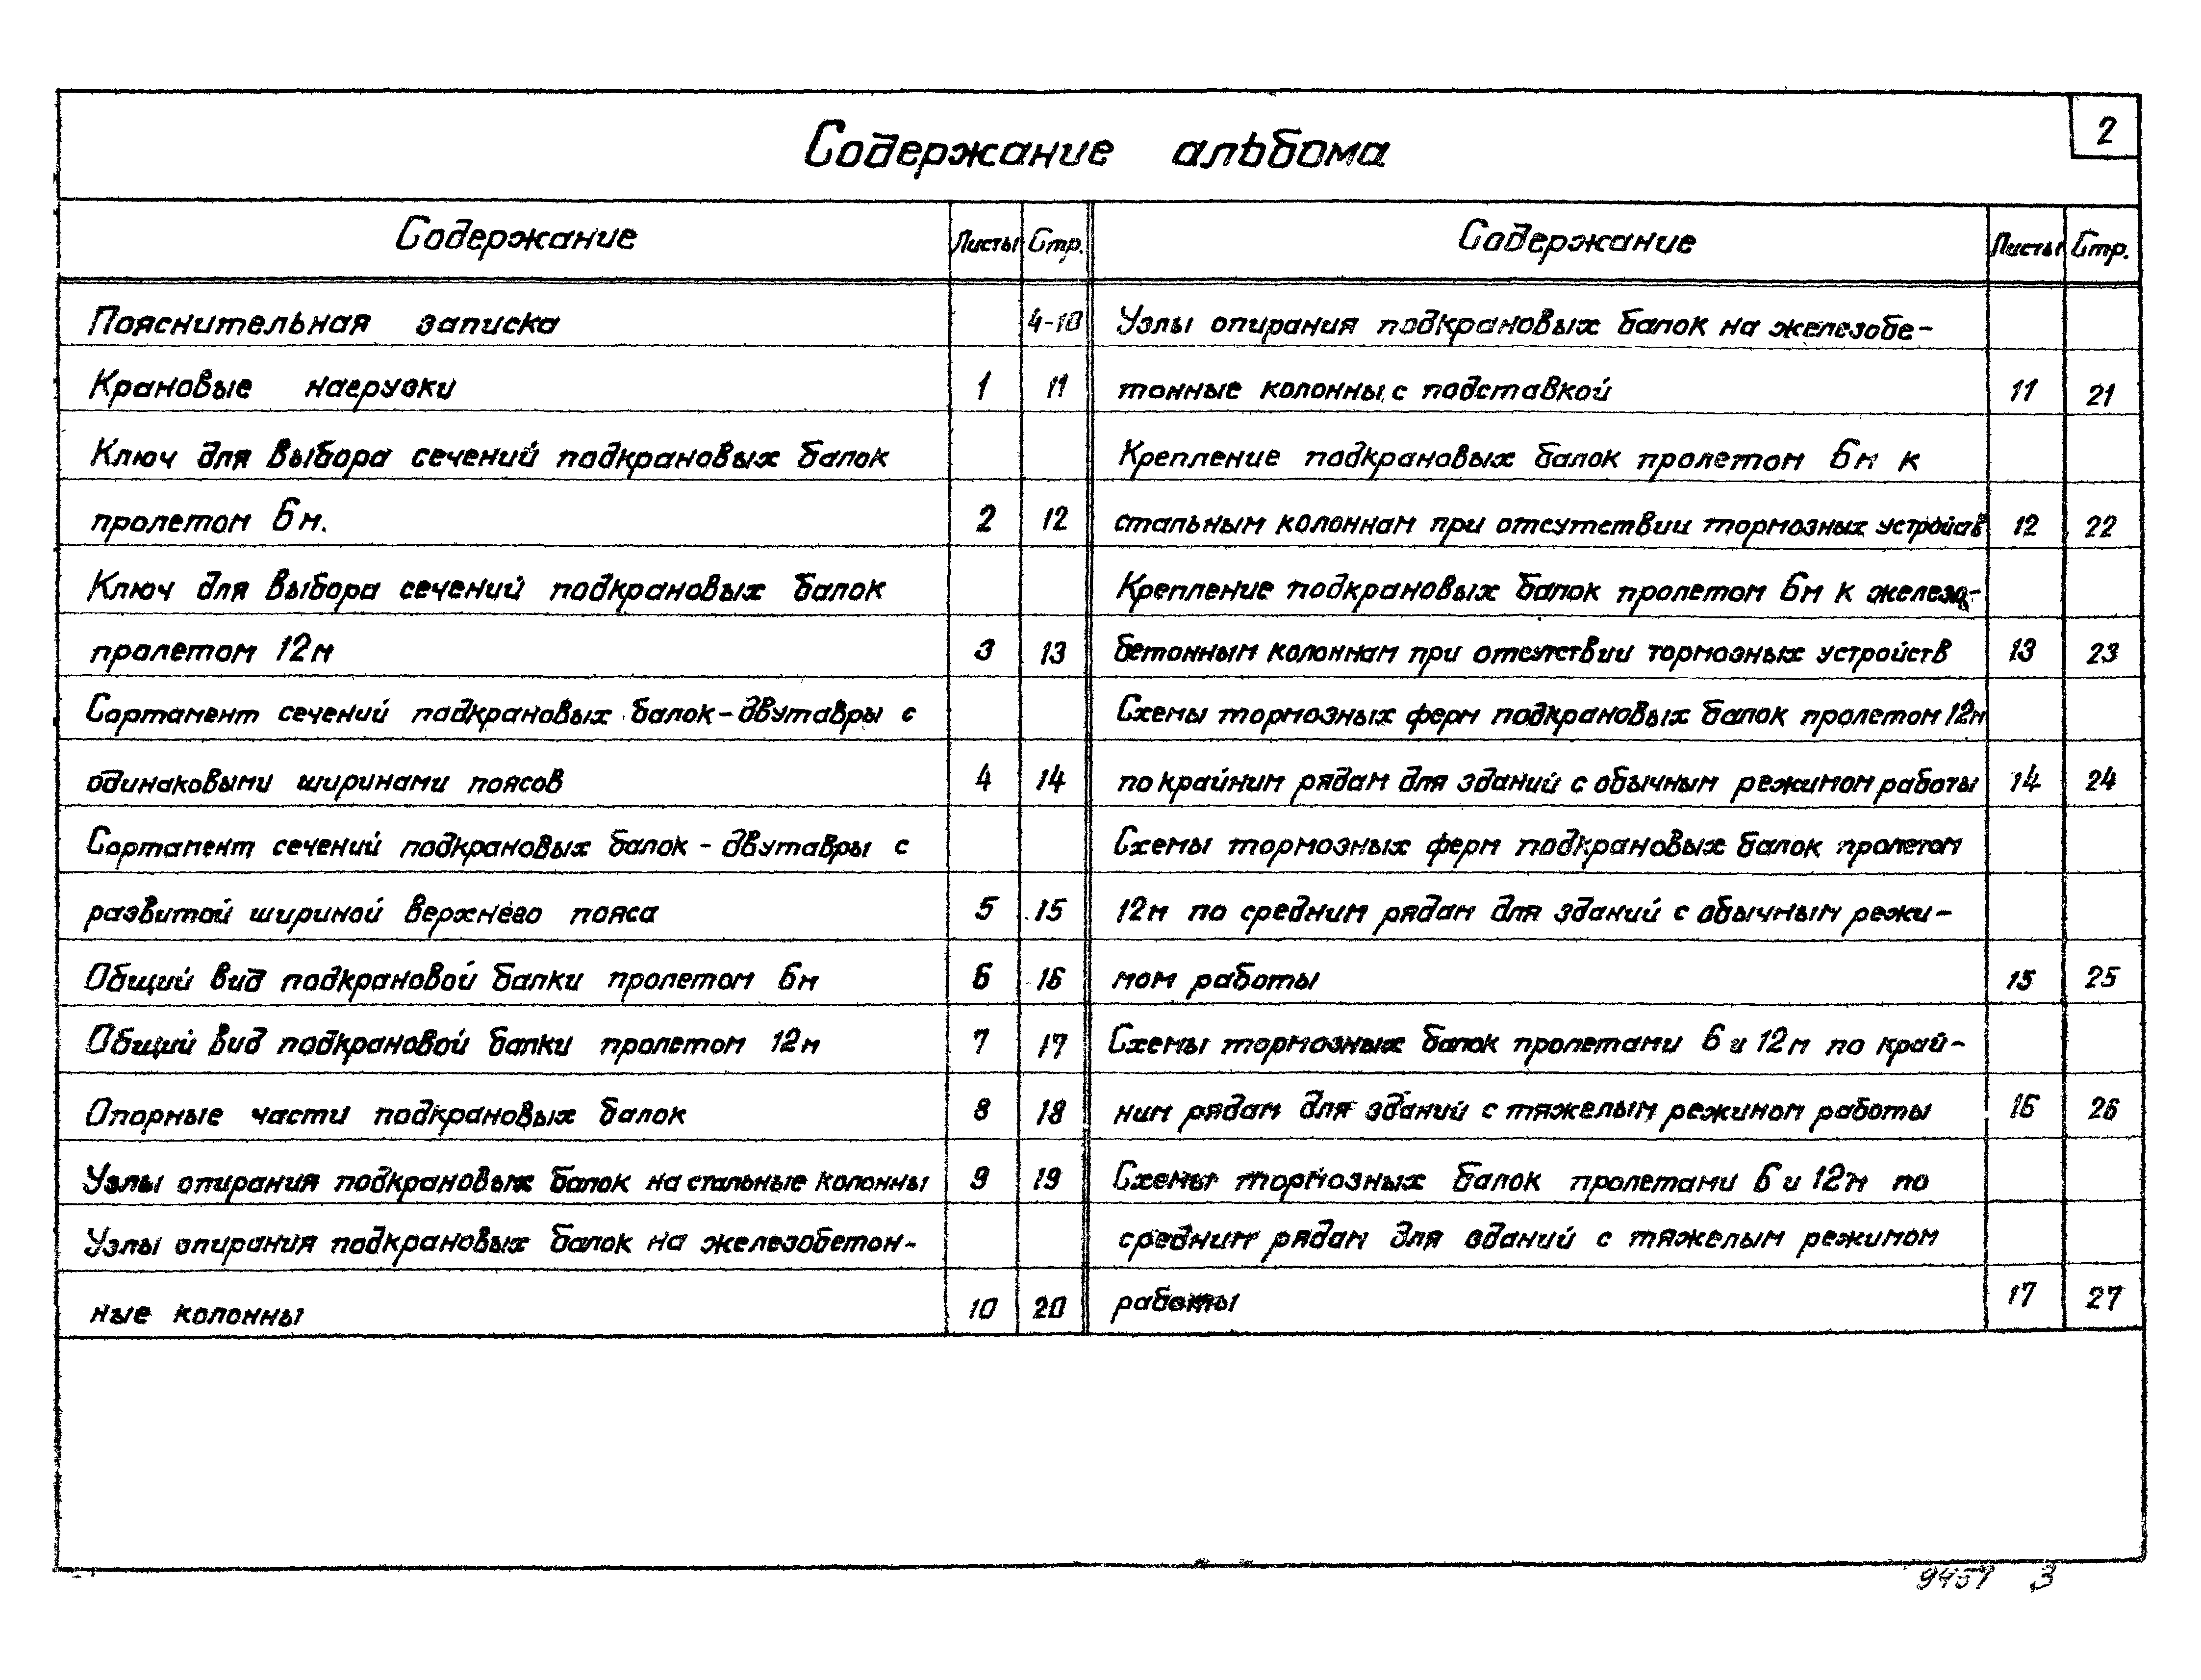 2
Содержание альбома
Содержание Листы Стр.
Пояснительная записка 4-10
Крановые нагрузки 1 11
Ключ для выбора сечений подкрановых балок
пролетом 6м. 2 12
Ключ для выбора сечений подкрановых балок
пролетом 12м 3 13
Сортамент сечений подкрановых балок-двутавры с
одинаковыми ширинами поясов 4 14
Сортамент сечений подкрановых балок - двутавры с
развитой шириной верхнего пояса 5 15
Общий вид подкрановой балки пролетом 6м 6 16
Общий вид подкрановой балки пролетом 12м 7 17
Опорные части подкрановых балок 8 18
Узлы опирания подкрановых балок на стальные колонны 9 19
Узлы опирания подкрановых балок на железобетон-
ные колонны 10 20
Содержание Листы Стр.
Узлы опирания подкрановых балок на железобе-
тонные колонны с подставкой 11 21
Крепление подкрановых балок пролетом 6м к
стальным колоннам при отсутствии тормозных устройств 12 22
Крепление подкрановых балок пролетом 6м к железо-
бетонным колоннам при отсутствии тормозных устройств 13 23
Схемы тормозных ферм подкрановых балок пролетом 12м
по крайним рядам для зданий с обычным режимом работы 14 24
Схемы тормозных ферм подкрановых балок пролетом
12м по средним рядам для зданий с обычным режи-
мом работы 15 25
Схемы тормозных балок пролетами 6 и 12м по край-
ним рядам для зданий с тяжелым режимом работы 16 26
Схемы тормозных балок пролетами 6 и 12м по
средним рядам для зданий с тяжелым режимом
работы 17 27
9459 3